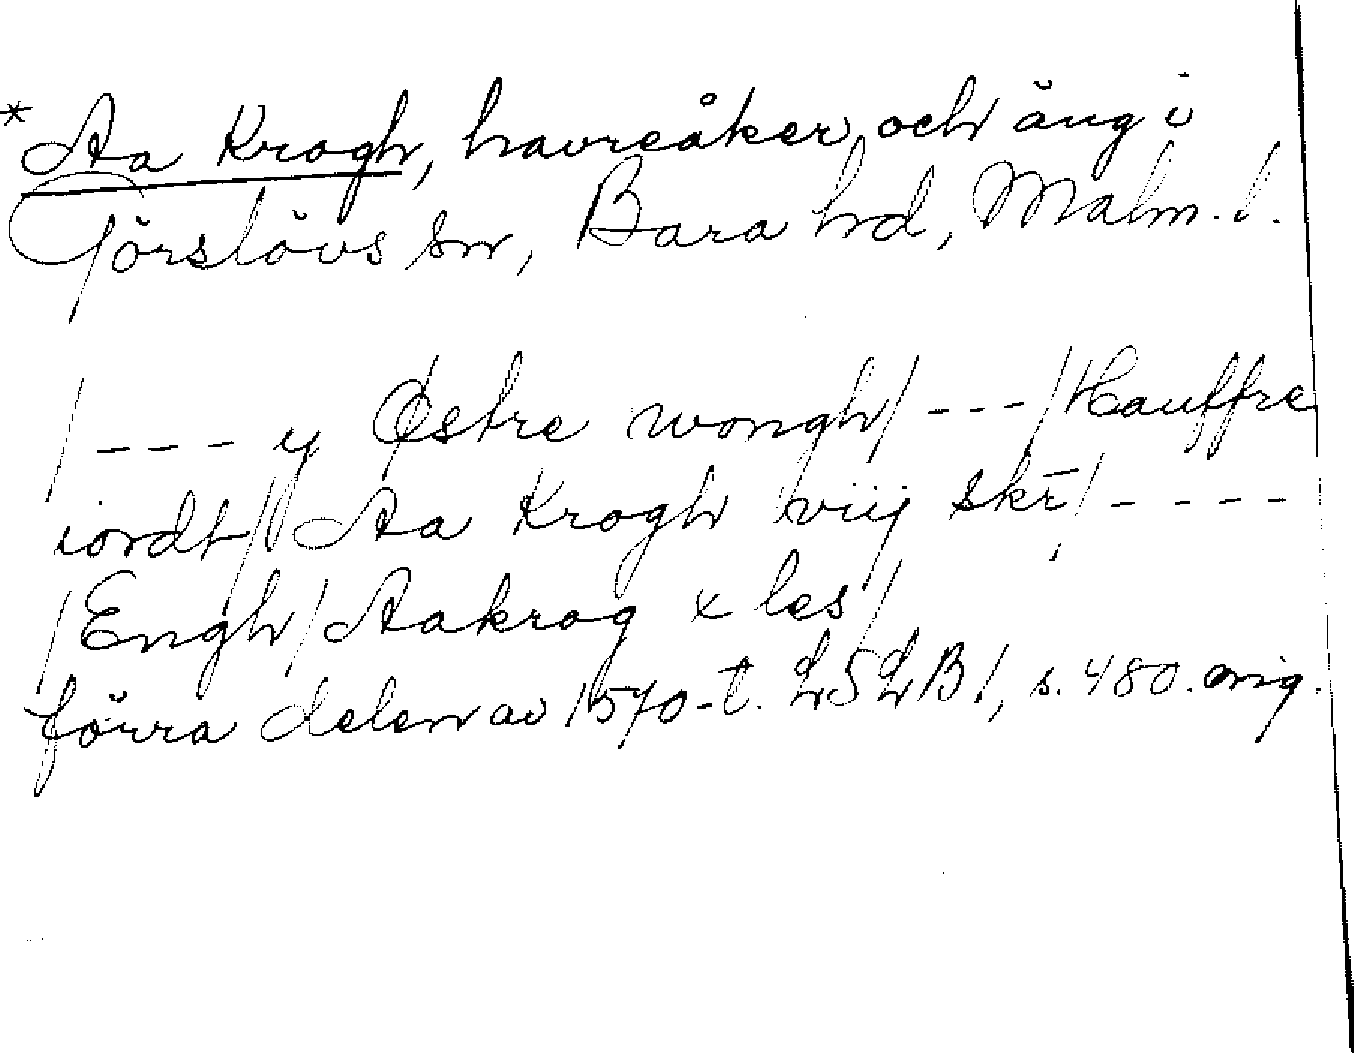 * Aa Krogh, havreåker och äng i
Görslövs sn, Bara hd, Malm. l.
/ - - - y Østre wongh / - - - / Hauffre
iordt / Aa Krogh viij skr̄ / - - - -
/ Engh / Aakrog x les /
förra delen av 1570-t. LSLB 1, s. 480. orig.